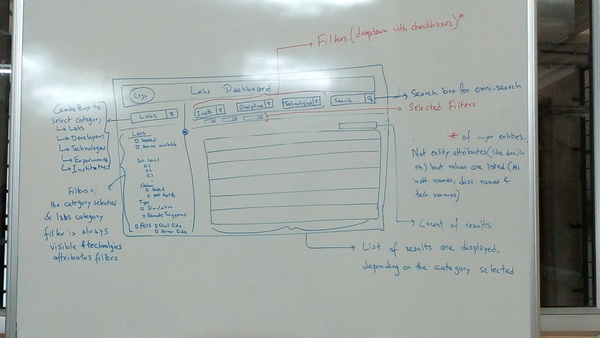 Filters (dropdown with checkboxes)*
Logo
Labs Dashboard
Search box for omni-search
Selected Filters
Combo Box to
select category
↳ Labs
↳ Developers
↳ Technologies
↳ Experiments
↳ Institutes
Labs
Instt.
Discipline
Technologies
Search
Labs
hosted
source available
Int. Level
1
2
3
Status
hosted
not hosted
Type
Simulation
Remote Triggered
Client Side
Server Side
Filters,
the category selected
& labs category
filter is always
visible & technologies
attributes filters
* of major entities.
Not entity attributes (like
etc) but values are listed (All
instt. names, disc. names &
tech. names)
Count of results
List of results are displayed,
depending on the category selected